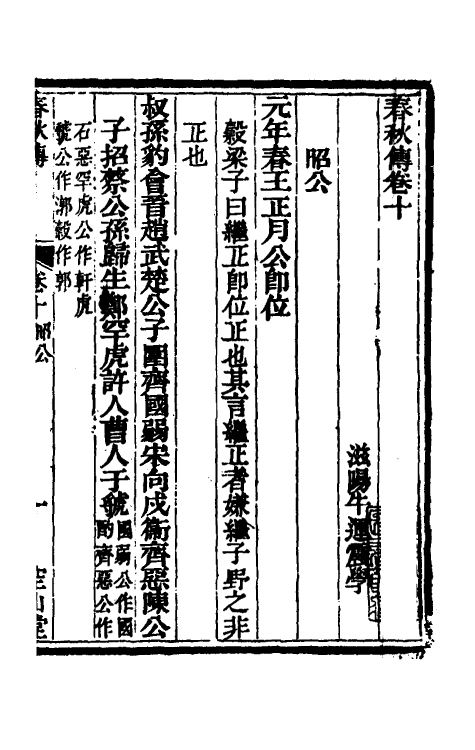 春秋傳卷十
滋陽牛運震學
昭公
元年春王正月公卽位
穀梁子曰繼正卽位正也其言繼正者嫌繼子野之非
正也
叔孫豹會晉趙武楚公子圍齊國弱宋向戌衞齊惡陳公
子招蔡公孫歸生鄭罕虎許人曹人于虢國弱公作國
酌齊惡公作
石惡罕虎公作軒虎
虢公作漷穀作郭
春秋傳
卷十昭公
一
空山堂